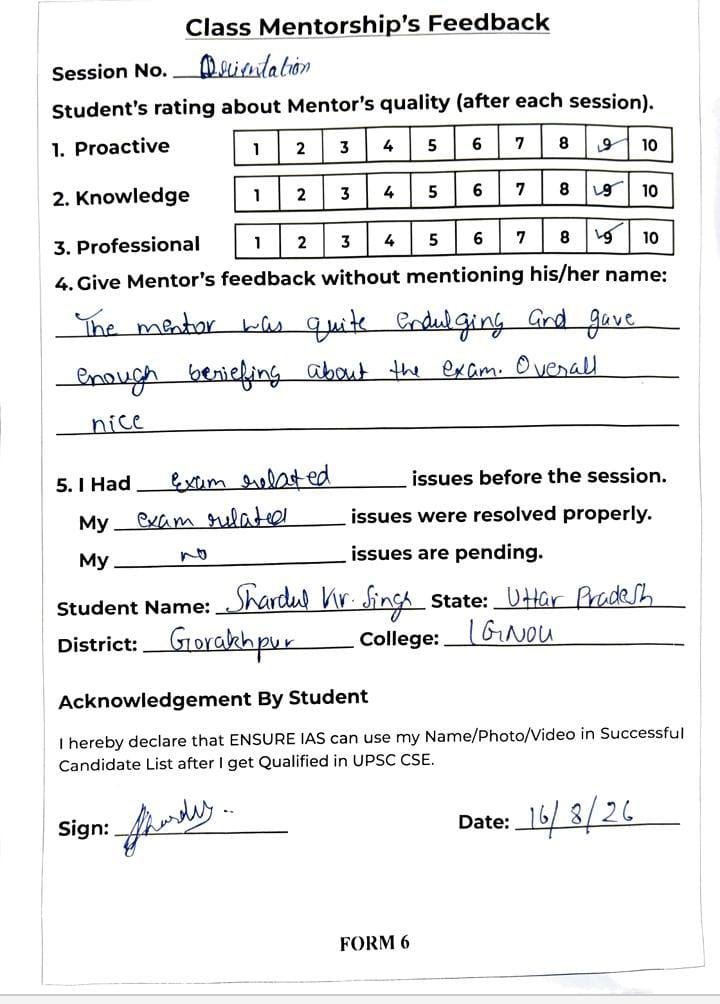 Class Mentorship's Feedback
Session No. Orientation
Student's rating about Mentor's quality (after each session).
1. Proactive 1 2 3 4 5 6 7 8 9 10
2. Knowledge 1 2 3 4 5 6 7 8 9 10
3. Professional 1 2 3 4 5 6 7 8 9 10
4. Give Mentor's feedback without mentioning his/her name:
The mentor was quite endulging and gave
enough beriefing about the exam. Overall
nice
5. I Had Exam related issues before the session.
My exam related issues were resolved properly.
My no issues are pending.
Student Name: Shardul Kr. Singh State: Uttar Pradesh
District: Gorakhpur College: IGNOU
Acknowledgement By Student
I hereby declare that ENSURE IAS can use my Name/Photo/Video in Successful
Candidate List after I get Qualified in UPSC CSE.
Sign: Date: 16/8/26
FORM 6